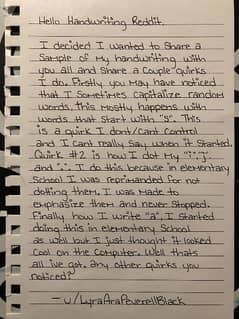 Hello Handwriting Reddit
I decided I wanted to Share a
Sample of My handwriting with
you all and Share a Couple quirks
I do. Firstly you may have noticed
that I Sometimes Capitalize random
words, this Mostly happens with
words that Start with "S". This
is a quirk I dont/cant Control
and I cant really Say when it Started.
Quirk #2 is how I dot My "i", "j",
and ".". I do this because in elementary
School I was reprimanded for not
dotting them. I was made to
emphasize them and never Stopped.
Finally how I write "a", I Started
doing this in elementary School
as well but I just thought it looked
Cool on the Computer. Well thats
all ive got. any other quirks you
noticed?
- u/LyraAraPeverellBlack